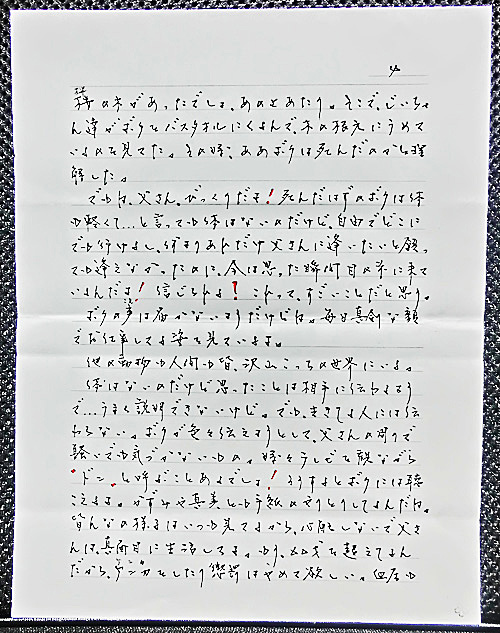 4
椿の木があったでしょ、あのとあたり。そこで、じいちゃ
ん達がボクをバスタオルにくるんで、木の根元にうめて
いるのを見てた。その時、ああボクは死んだのかと理
解した。
でもね、父さん、びっくりだよ!死んだはずのボクは体
も軽くて…と言っても体はないのだけど、自由でどこに
でも行けるし、何よりあれだけ父さんに逢いたいと願っ
ても逢えなかったのに、今は思った瞬間目の前に来て
いるんだよ!信じられる!これって、すごいことだと思う。
ボクの声は届かないようだけどね。毎日真剣な顔
でお仕事してる姿を見ていますよ。
他の動物も人間も皆、沢山こっちの世界にいるよ。
体はないのだけど思ったことは相手に伝わるよう
で…うまく説明できないけど。でも、生きてる人には伝
わらない。ボクが色々伝えようとして、父さんの周りで
騒いでも気づかないもの。時々テレビを観ながら
"ドン"と呼ぶことあるでしょ!そうするとボクには聴
こえるよ。かずみや真美とも手紙のやりとりしてんだね。
皆んなの様子はいつも見てるから、心配しないで父さ
んは、真面目に生活してよ。もう、60才を超えてるん
だから、ケンカをしたり懲罰はやめて欲しい。血圧も